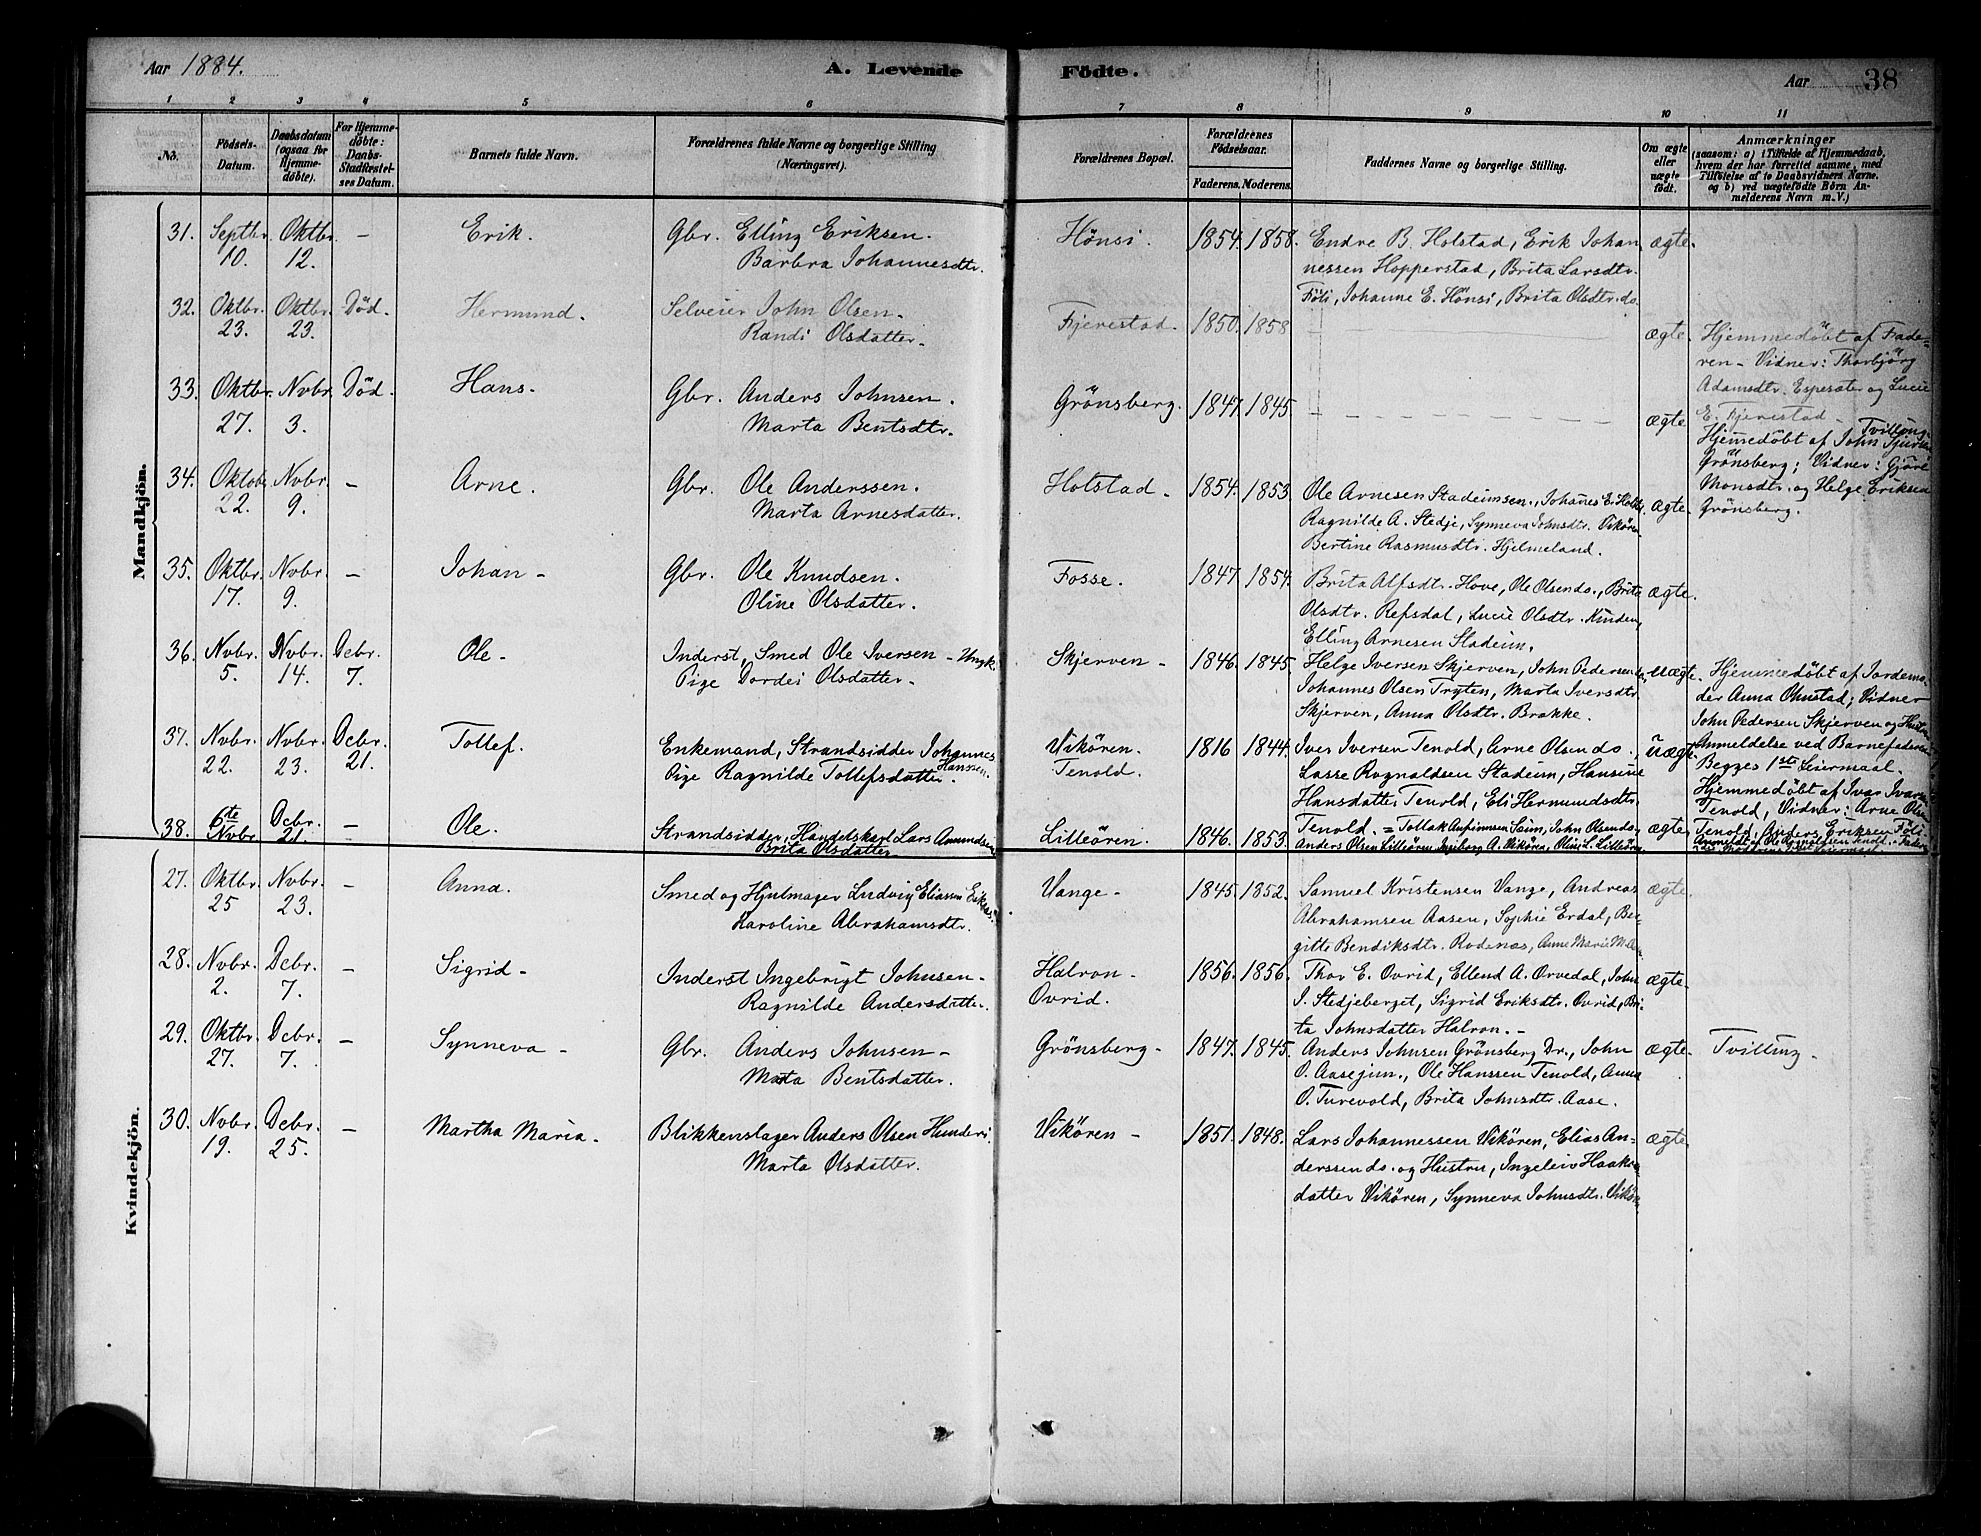 Aar 1884.
A. Levende Födte.
Aar 38
1 2 3 4 5 6 7 8 9 10 11
No.
Fødsels-Datum.
Daabsdatum (ogsaa for Hjemme-døbte).
For Hjemme-døbte: Daabs-Stadfæstel-ses Datum.
Barnets fulde Navn.
Forældrenes fulde Navne og borgerlige Stilling (Næringsvei).
Forældrenes Bopæl.
Forældrenes Fødselsaar.
Faderens. Moderens.
Faddernes Navne og borgerlige Stilling.
Om ægte eller uægte født.
Anmærkninger
(saasom: a) i Tilfælde af Hjemmedaab, hvem der har forrettet samme, med Tilføielse af to Daabsvidners Navne. og b) ved uægtefødte Børn An-melderens Navn m.V.)
Mandkjön.
31. Septbr. Oktbr. – Erik. Gbr. Elling Eriksen. Hönsi. 1854. 1858. Endre B. Holstad, Erik Johan ægte.
10. 12. Barbra Johannesdtr. nessen Hopperstad, Brita Larsdtr.
Föli, Johanne E. Hönsi, Brita Olsdtr. do.
32. Oktbr. Oktbr. Död. Hermund. Selveier John Olsen. Fjerestad. 1850. 1858 ægte. Hjemmedöbt af Fade-
23. 23. Randi Olsdatter. ren – Vidner: Thorbjörg
Adamsdtr. Espesæter og Lucie
E. Fjerestad –
33. Oktbr. Nvbr. Död. Hans. Gbr. Anders Johnsen. Grönsberg. 1847. 1845. ægte. Tvilling.
27. 3. Marta Bentsdtr. Hjemedöbt af John
Grönsberg; Vidner:
Monsdtr. og Helge Eriksen
Grönsberg.
34. Oktob. Nvbr. – Arne. Gbr. Ole Anderssen. Holstad – 1854. 1853. Ole Arnesen Stadeimsen., Johanes E. ægte.
22. 9. Marta Arnesdatter. Ragnilde A. Stedje, Synneva Johnsdtr. Vikören
Bertine Rasmusdtr. Hjelmeland.
35. Oktbr. Nvbr. – Johan – Gbr. Ole Knudsen. Fosse. 1847. 1854. Brita Alfsdtr. Hove, Ole Olsen do., Brita ægte.
17. 9. Oline Olsdatter. Olsdtr. Refsdal, Lucie Olsdtr.
Elling Arnesen Stadeim.
36. Nvbr. Nvbr. Dcbr. Ole – Inderst, Smed Ole Iversen – Ungk. Skjerven – 1846. 1845. Helge Iversen Skjerven, John Pedersen do, uægte. Hjemmedöbt af Jordemo-
5. 14. 7. Pige Dordei Olsdatter – Johannes Olsen Tryten, Marta Iversdtr. der Anna Ohnstad; Vidner
Skjerven, Anna Olsdtr. Brække. John Pedersen Skjerven og Hustru
Anmeldelse ved Barnefaderen
Begges 1ste Leiermaal.
37. Nvbr. Nvbr. Dcbr. Tollef. Enkemand, Strandsidder Johannes Hanssen. Vikören. 1816 1844. Iver Iversen Tenold, Arne Olsen do., uægte
22. 23. 21. Pige Ragnilde Tollefsdatter. Tenold. Lasse Rognaldsen Stadeim, Hansine Hjemmedöbt af Ivar Ivarsen
Hansdatter Tenold, Eli Hermundsdtr. Tenold, Vidner: Arne Olsen
Tenold. Tenold, Anders Eriksen Föli.
38. 6te Dcbr. – Ole. Strandsidder, Handelskarl Lars Amundsen Lilleören. 1846. 1853. Tollak Anfinnsen Seim, John Olsen do, ægte
Nvbr. 21. Brita Olsdatter Anders Olsen Lilleören, Ingeborg A. Vikören, Olina L. Lilleören
Kvindekjön.
27. Oktbr. Nvbr. – Anna. Smed og Hjulmager Ludvig Eliasen Vange – 1845. 1852. Samuel Kristensen Vange, Andreas ægte.
25 23. Karoline Abrahamsdtr. Abrahamsen Aasen, Sophie Erdal, Ber-
gitte Bendiksdtr. Rodenas, Anne Marie
28. Nvbr. Dcbr. – Sigrid – Inderst Ingebrigt Johnsen – Halron – 1856. 1856. Thor E. Ovrid, Ellend A. Orvedal, John ægte.
2. 7. Ragnilde Andersdatter. Ovrid. I. Stedjeberget, Sigrid Eriksdtr. Ovrid, Bri-
ta Johnsdatter Halron. –
29. Oktbr. Dcbr. – Synneva – Gbr. Anders Johnsen – Grönsberg – 1847. 1845. Anders Johnsen Grönsberg Dr., John ægte. Tvilling –
27. 7. Marta Bentsdatter. O. Aasejun., Ole Hanssen Tenold, Anna
O. Turevold, Brita Johnsdtr. Aase.
30. Nvbr. Dcbr. – Martha Maria. Blikkenslager Anders Olsen Hunderi Vikören – 1851. 1848. Lars Johannessen Vikören, Elias An- ægte.
19. 25. Marta Olsdatter. derssen do. og Hustru, Ingeleiv Haaks-
datter Vikören, Synneva Johnsdtr. Vikören